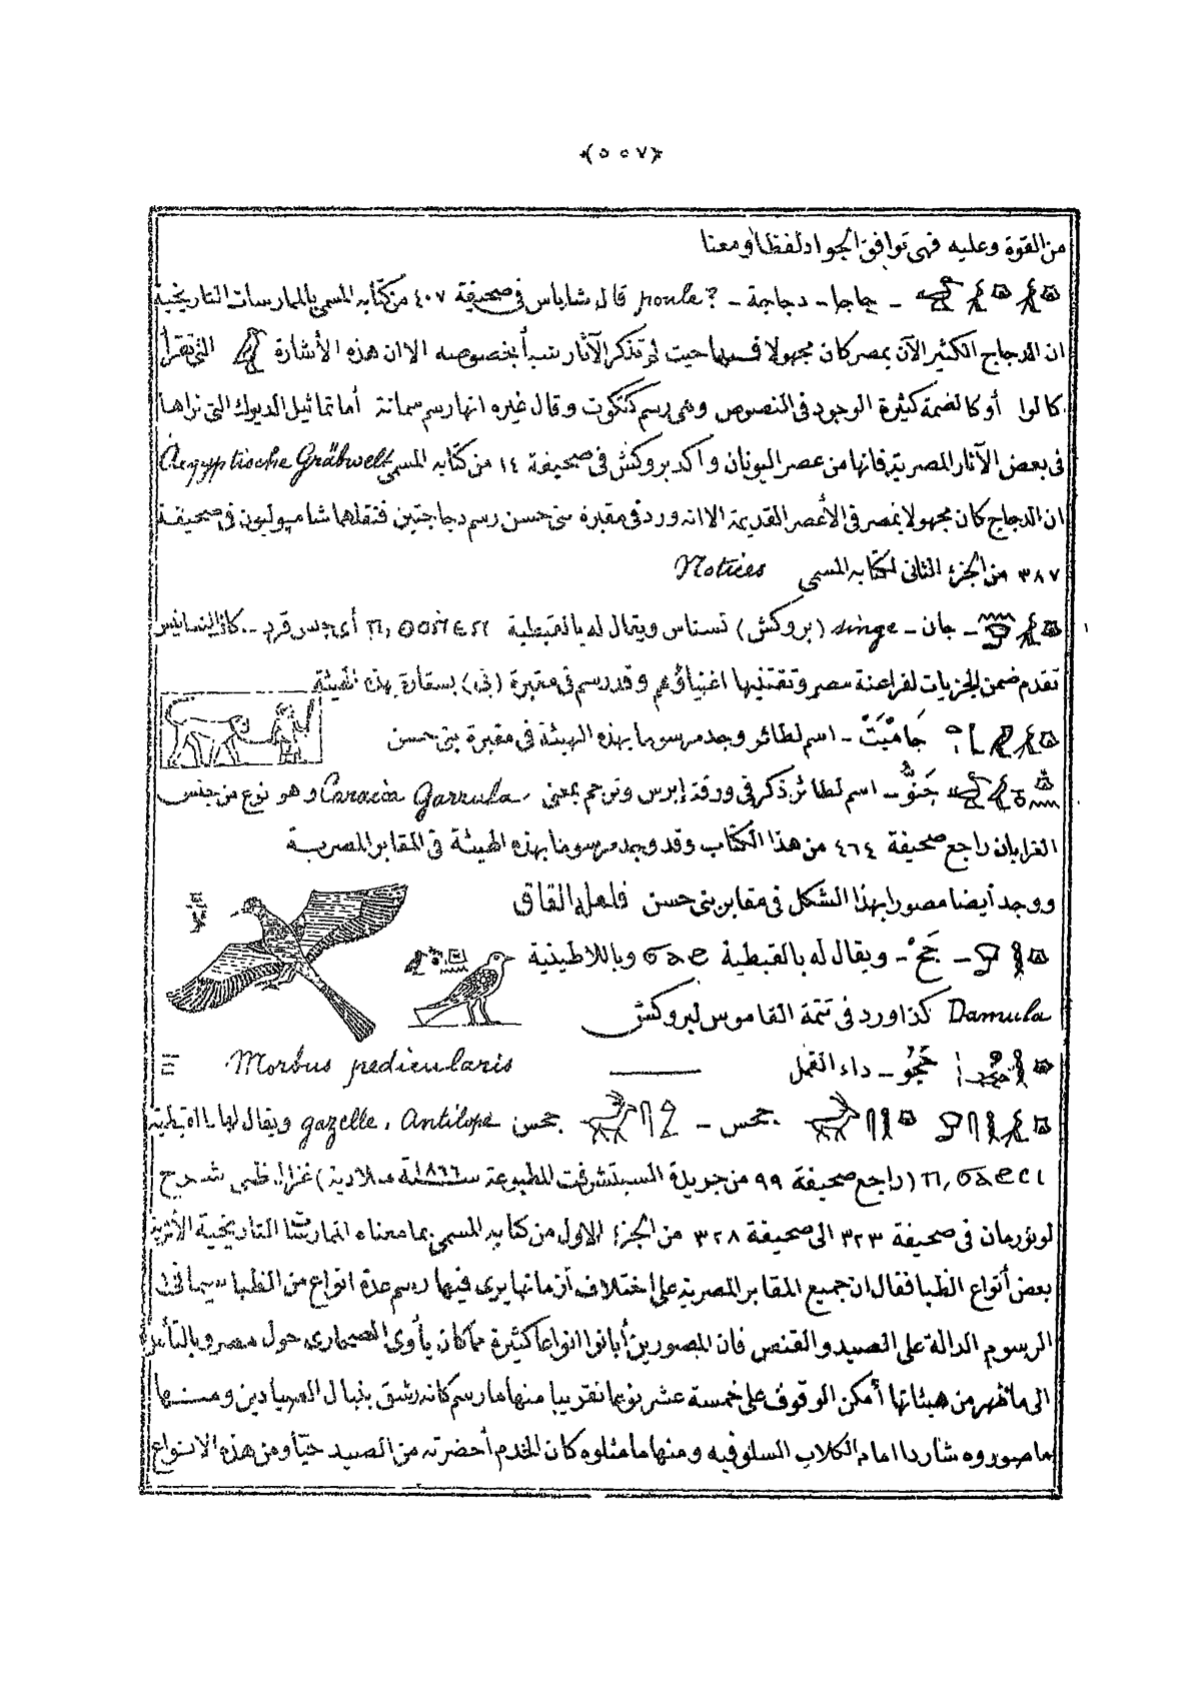 ﴿٥٠٧﴾
من القوة وعليه فهى توافق الجواد لفظا ومعنا
ـ جاجا ـ دجاجة ـ ? poule قال شاباس فى صحيفة ٤٠٧ من كتابه المسمى بالممارسات التاريخية
ان الدجاج الكثير الآن بمصر كان مجهولا قديما حيث لم تذكر الآثار شيأ بخصوصه الا ان هذه الأشارة التى تقرأ
كا لوا أو كا لضمة كثيرة الوجود فى النصوص وهى رسم كتكوت وقال غيره انها رسم سمانة أما تماثيل الديوك التى نراها
فى بعض الآثار المصرية فانها من عصر اليونان وأكد بروكش فى صحيفة ١٤ من كتابه المسمى Aegyptische Gräbwelt
ان الدجاج كان مجهولا بمصر فى الأعصر القديمة الا انه ورد فى مقبرة بنى حسن رسم دجاجتين فنقلها شامبوليون فى صحيفة
٣٨٧ من الجزء الثانى لكتابه المسمى Notices
ـ جان ـ singe (بروكش) نسناس ويقال له بالقبطية أى جنس قرد .. كان النسانيس
تقدم ضمن الجزيات لفراعنة مصر وتقتنيها اغنياؤهم وقد رسم فى مقبرة (تى) بسقارة بهذه الهيئة
جَامْبَتْ ـ اسم لطائر وجد مرسوما بهذه الهيئة فى مقبرة بنى حسن
جَنُّو ـ اسم لطائر ذكر فى ورقة إبرس وترجم بمعنى Caracia garrula وهو نوع من جنس
الغرابان راجع صحيفة ٤٦٤ من هذا الكتاب وقد وجد مرسوما بهذه الهيئة فى المقابر المصرية
ووجد أيضا مصورا بهذا الشكل فى مقابر بنى حسن فلعله القاق
ـ جَحْ ـ ويقال له بالقبطية ϭⲁϩⲉ وباللاطينية
Damula كذا ورد فى تتمة القاموس لبروكش
جَحُو ـ داء القمل ــــــ Morbus pedicularis
جحس ـ جحس gazelle, Antilope ويقال لها بالقبطية
(راجع صحيفة ٩٩ من جريدة السيتشرفت المطبوعة سنة ١٨٦٦ ميلادية) غزال ظبى شرح
لونورمان فى صحيفة ٣٢٣ الى صحيفة ٣٢٨ من الجزء الاول من كتابه المسمى بما معناه الممارسات التاريخية الأثرية
بعض أنواع الظبا فقال ان جميع المقابر المصرية على اختلاف أزمانها يرى فيها رسم عدة انواع من الظبا سيما فى
الرسوم الدالة على الصيد والقنص فان المصورين أبانوا انواعا كثيرة مما كان يأوى الصحارى حول مصر وبالتأمل
الى ما ظهر من هيئاتها أمكن الوقوف على خمسة عشر نوعا تقريبا منها ما رسم كانه رشق بنبال الصيادين ومنها
ما صوروه شاردا امام الكلاب السلوقيه ومنها ما مثلوه كان الخدم أحضرته من الصيد حيّا ومن هذه الانواع